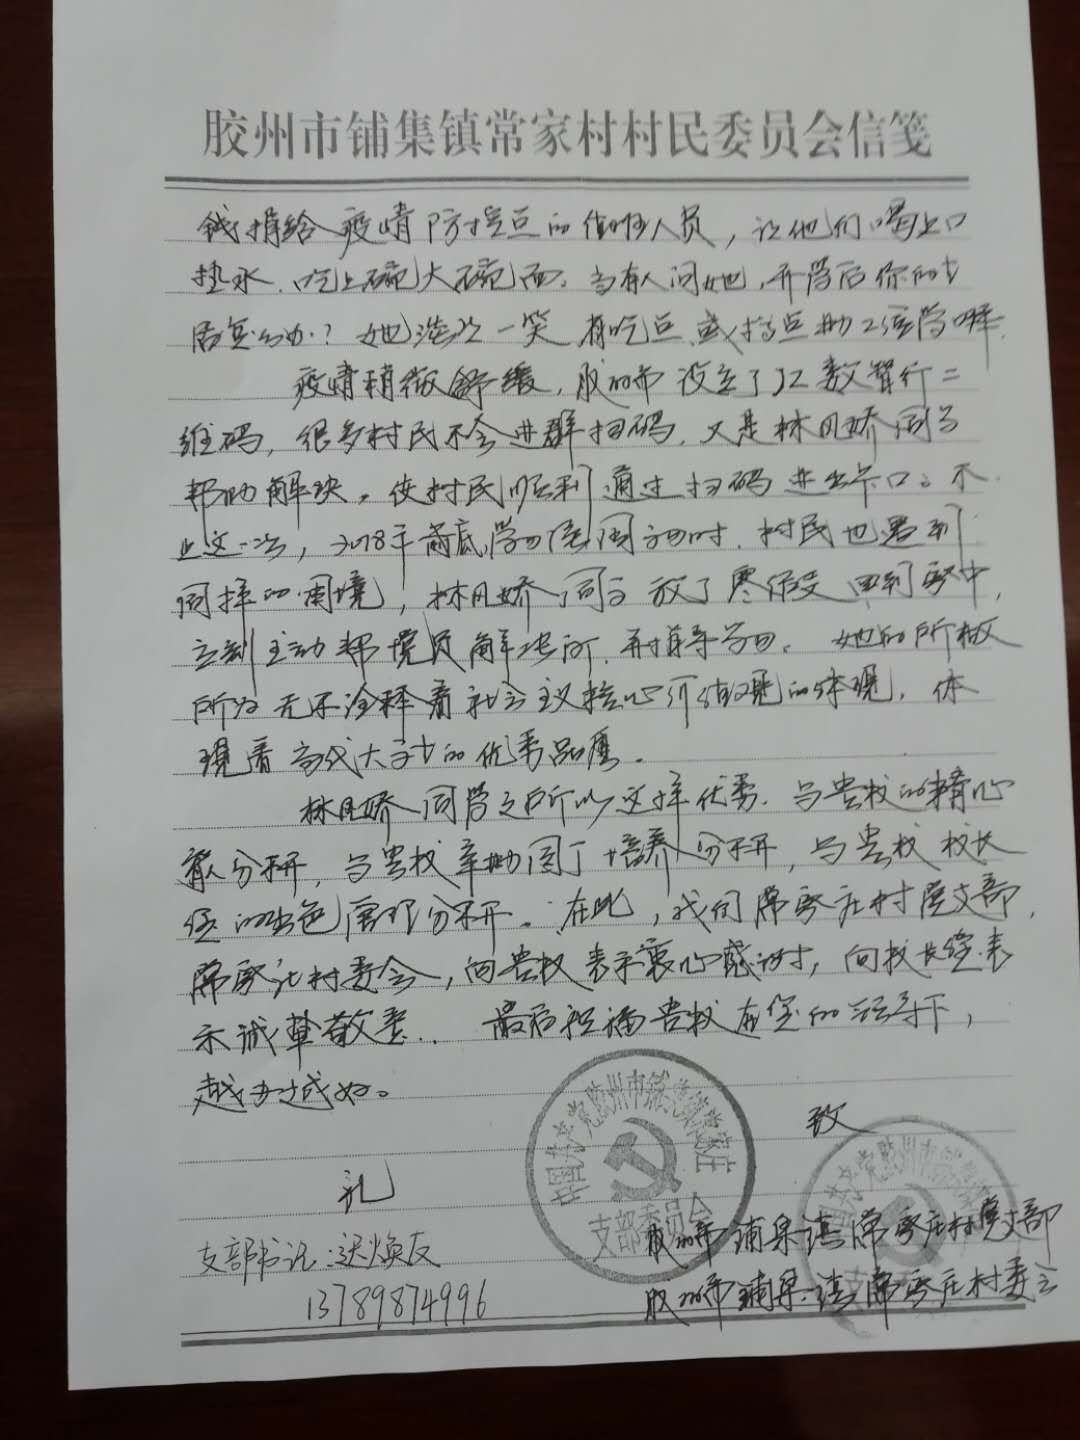 胶州市铺集镇常家村村民委员会信笺
钱捐给疫情防控点的值班人员，让他们喝上口
热水、吃上碗大碗面。当有人问她，开学后你的生
活怎么办？她淡淡一笑 有吃点
疫情稍微舒缓，胶州市设立了 数智行二
维码，很多村民不会进群扫码，又是林凤娇同学
帮助解决。使村民顺利通过扫码进出卡口。不
止这一次，2018年 学习强国 时，村民也遇到
同样的困境，林凤娇同学放了寒假 回到家中，
立刻主动帮 员解决 ，指导学习。她的所做
所为无不诠释着社会主义核心价值观的体现，体
现着当代大学生的优秀品质。
林凤娇同学之所以这样优秀，与贵校的精心
育人分不开，与贵校辛勤园丁培养分不开，与贵校校长
您的出色管理分不开。在此，我们常家庄村党支部，
常家庄村委会，向贵校表示衷心感谢，向校长您表
示诚挚敬意。 最后祝福贵校在您的领导下，
越办越好。
致
礼
中国共产党胶州市铺集镇常家庄
支部委员会
支部书记： 焕友
胶州市铺集镇常家庄村党支部
13789874996
胶州市铺集镇常家庄村委会